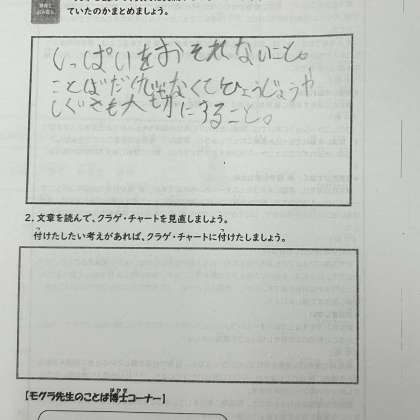 ていたのかまとめましょう。
しっぱいをおそれないこと。
ことばだけじゃなくてひょうじょうや
しぐさも大切にすること。
2. 文章を読んで、クラゲ・チャートを見直しましょう。
付けたしたい考えがあれば、クラゲ・チャートに付けたしましょう。
【モグラ先生のことば博士コーナー】